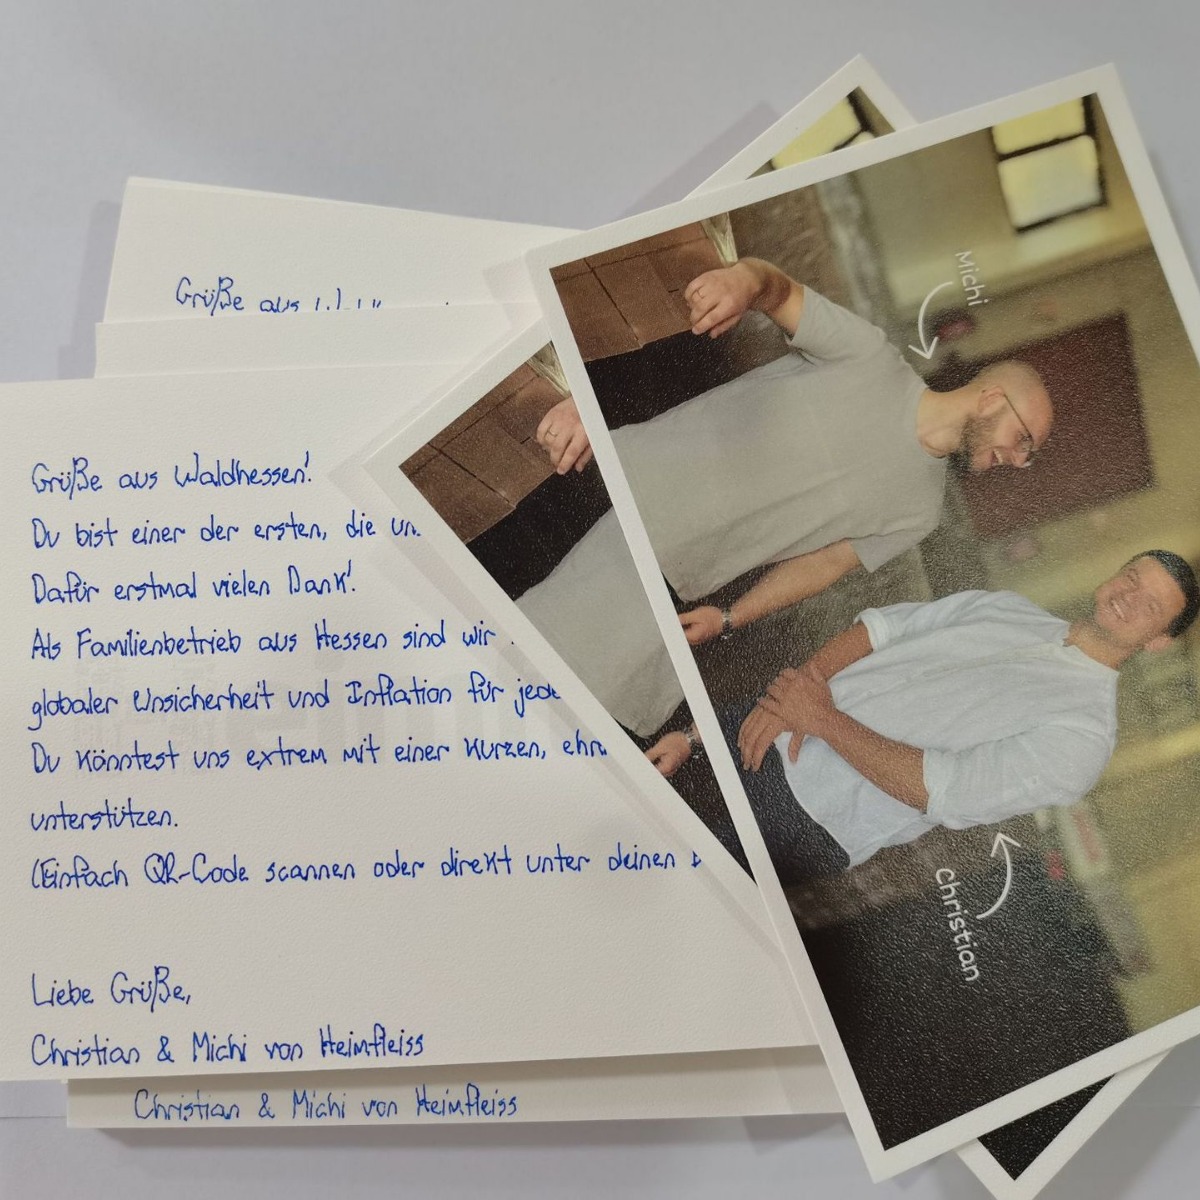 Grüße aus
Grüße aus Waldhessen!
Du bist einer der ersten, die
Dafür erstmal vielen Dank!
Als Familienbetrieb aus Hessen sind wir
globaler Unsicherheit und Inflation für
Du könntest uns extrem mit einer kurzen,
unterstützen.
(Einfach QR-Code scannen oder direkt unter deinen
Liebe Grüße,
Christian & Michi von Heimfleiss
Christian & Michi von Heimfleiss
Michi
Christian